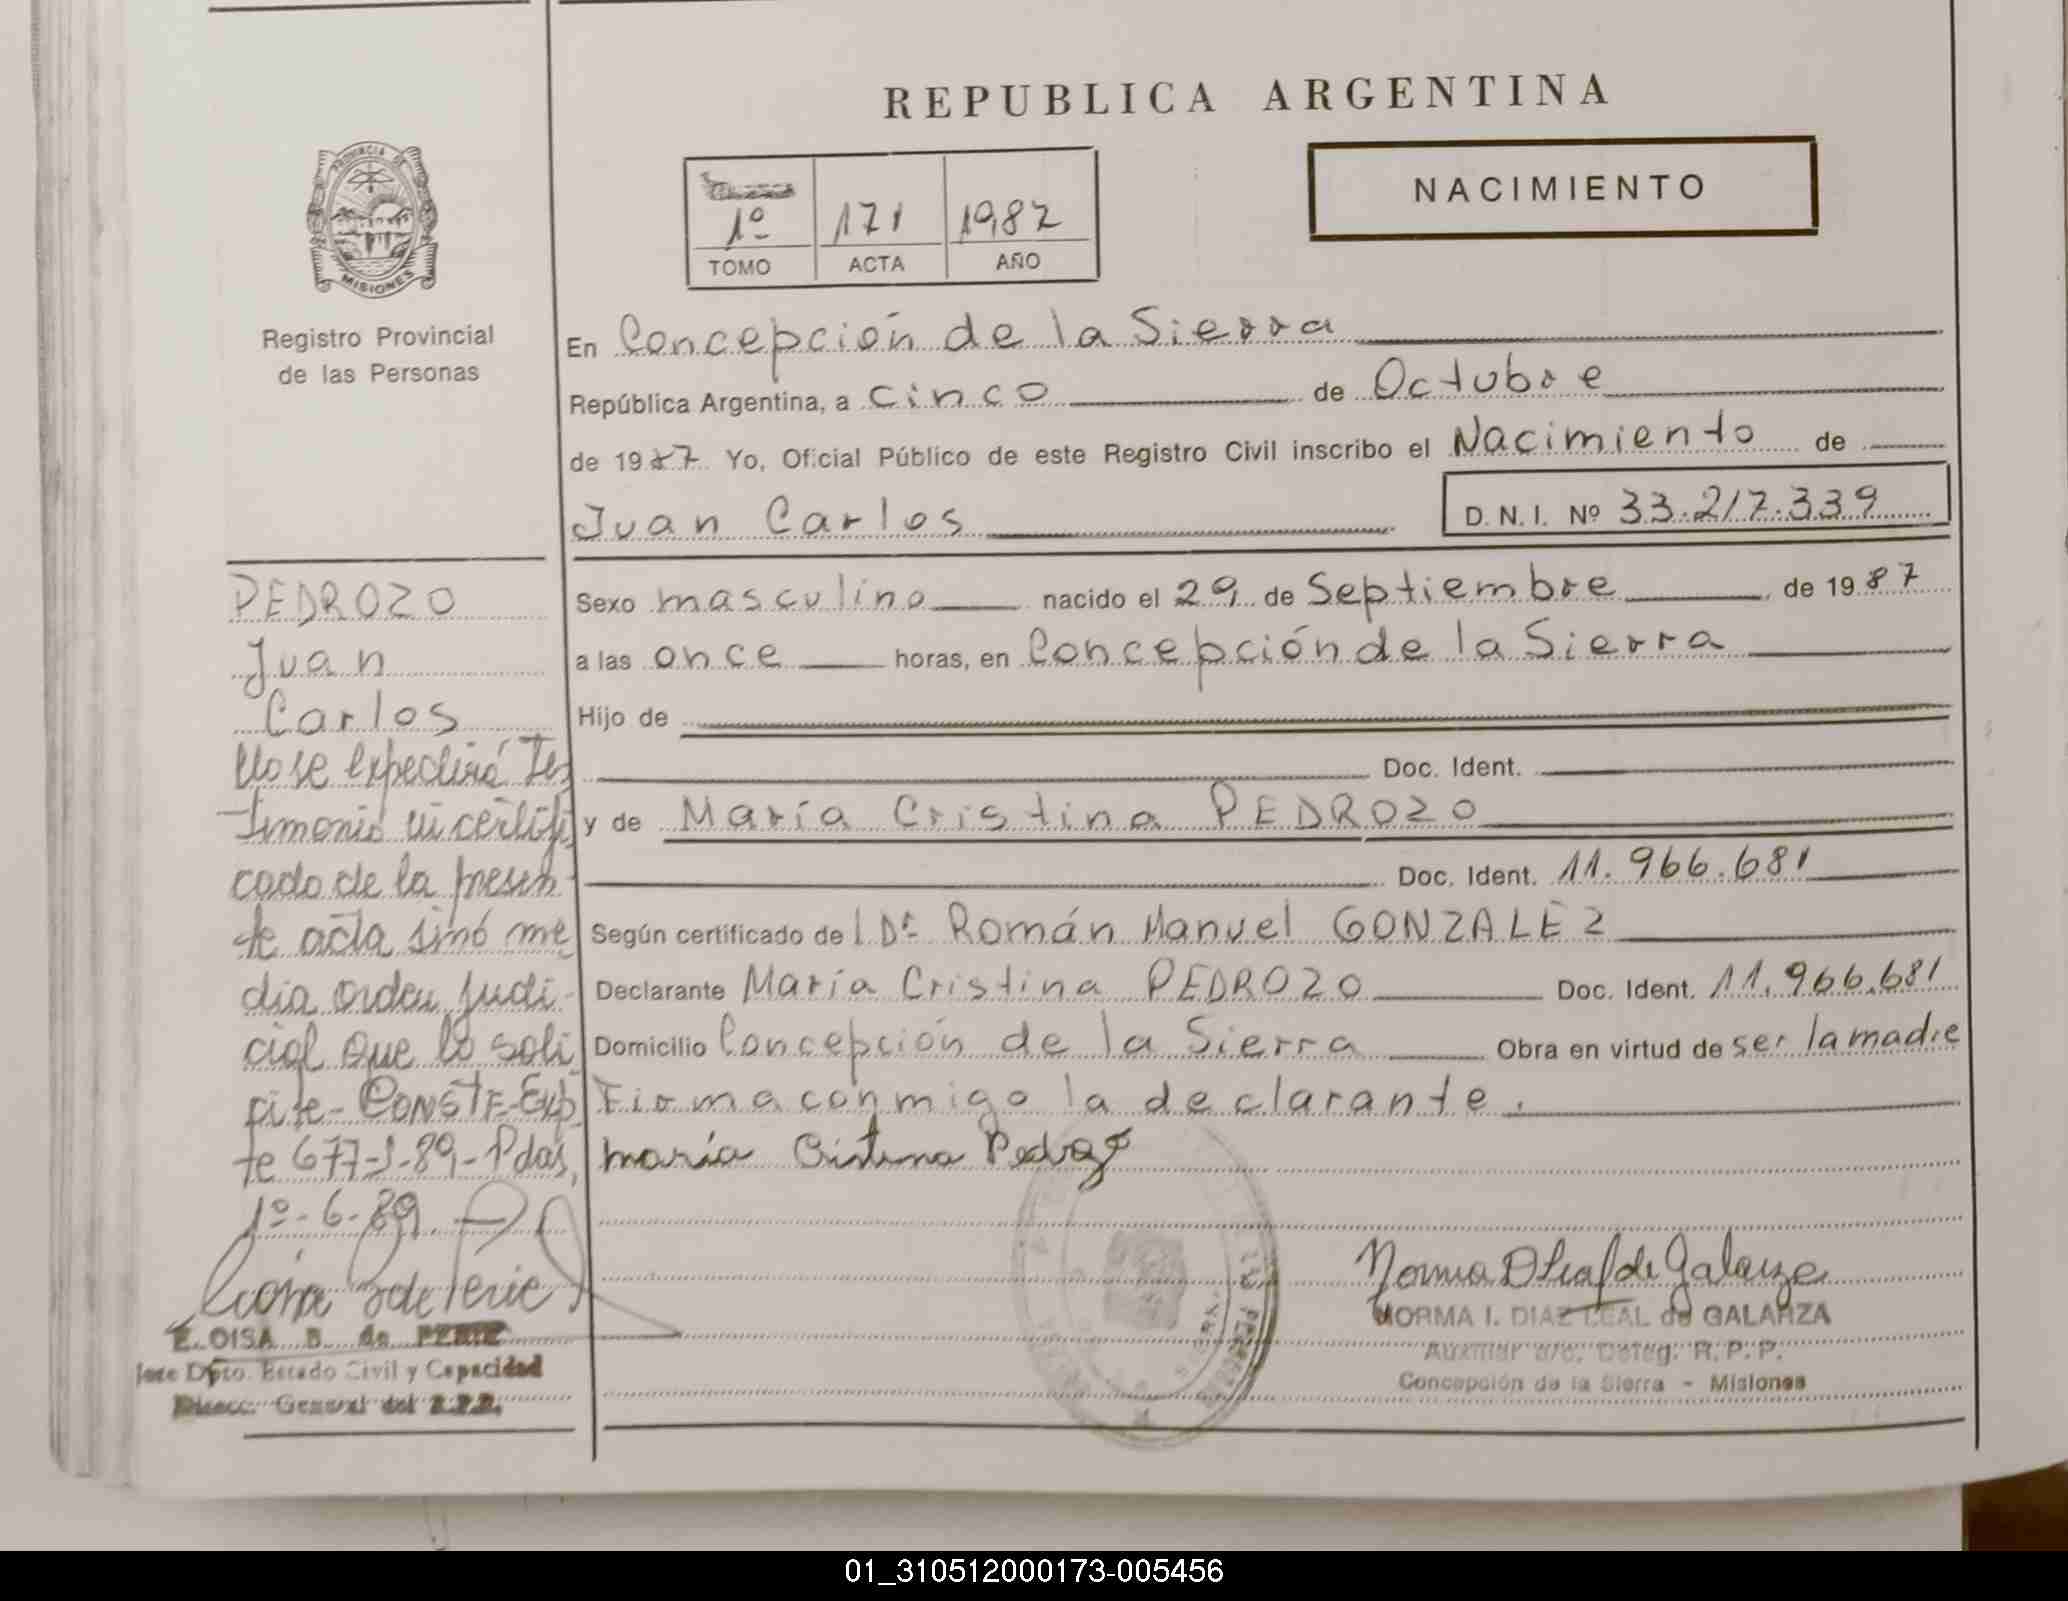 REPUBLICA ARGENTINA
NACIMIENTO
1º 171 1987
TOMO ACTA AÑO
PROVINCIA DE
MISIONES
Registro Provincial
de las Personas
En Concepción de la Sierra
República Argentina, a cinco de Octubre
de 1987 Yo, Oficial Público de este Registro Civil inscribo el Nacimiento de
Juan Carlos D. N. I. Nº 33.217.339
Sexo masculino nacido el 29 de Septiembre de 1987
a las once horas, en Concepción de la Sierra
Hijo de
Doc. Ident.
y de María Cristina PEDROZO
Doc. Ident. 11.966.681
Según certificado del Dr. Román Manuel GONZALEZ
Declarante María Cristina PEDROZO Doc. Ident. 11.966.681
Domicilio Concepción de la Sierra Obra en virtud de ser la madre
Firma conmigo la declarante.
maría Cristina Pedrozo
PEDROZO
Juan
Carlos
No se expedirá Tes
timonio ni certifi
cado de la presen
te acta sinó me
dia orden judi
cial que lo soli
cite - CONSTE - Exp
te 677-J-89,- Pdas,
1º-6-89
ELOISA B. de PERIE
Jefe Dpto. Estado Civil y Capacidad
Direcc. General del R.P.P.
NORMA I. DIAZ LEAL de GALARZA
Auxiliar a/c. Deleg. R. P. P.
Concepción de la Sierra - Misiones
01_310512000173-005456